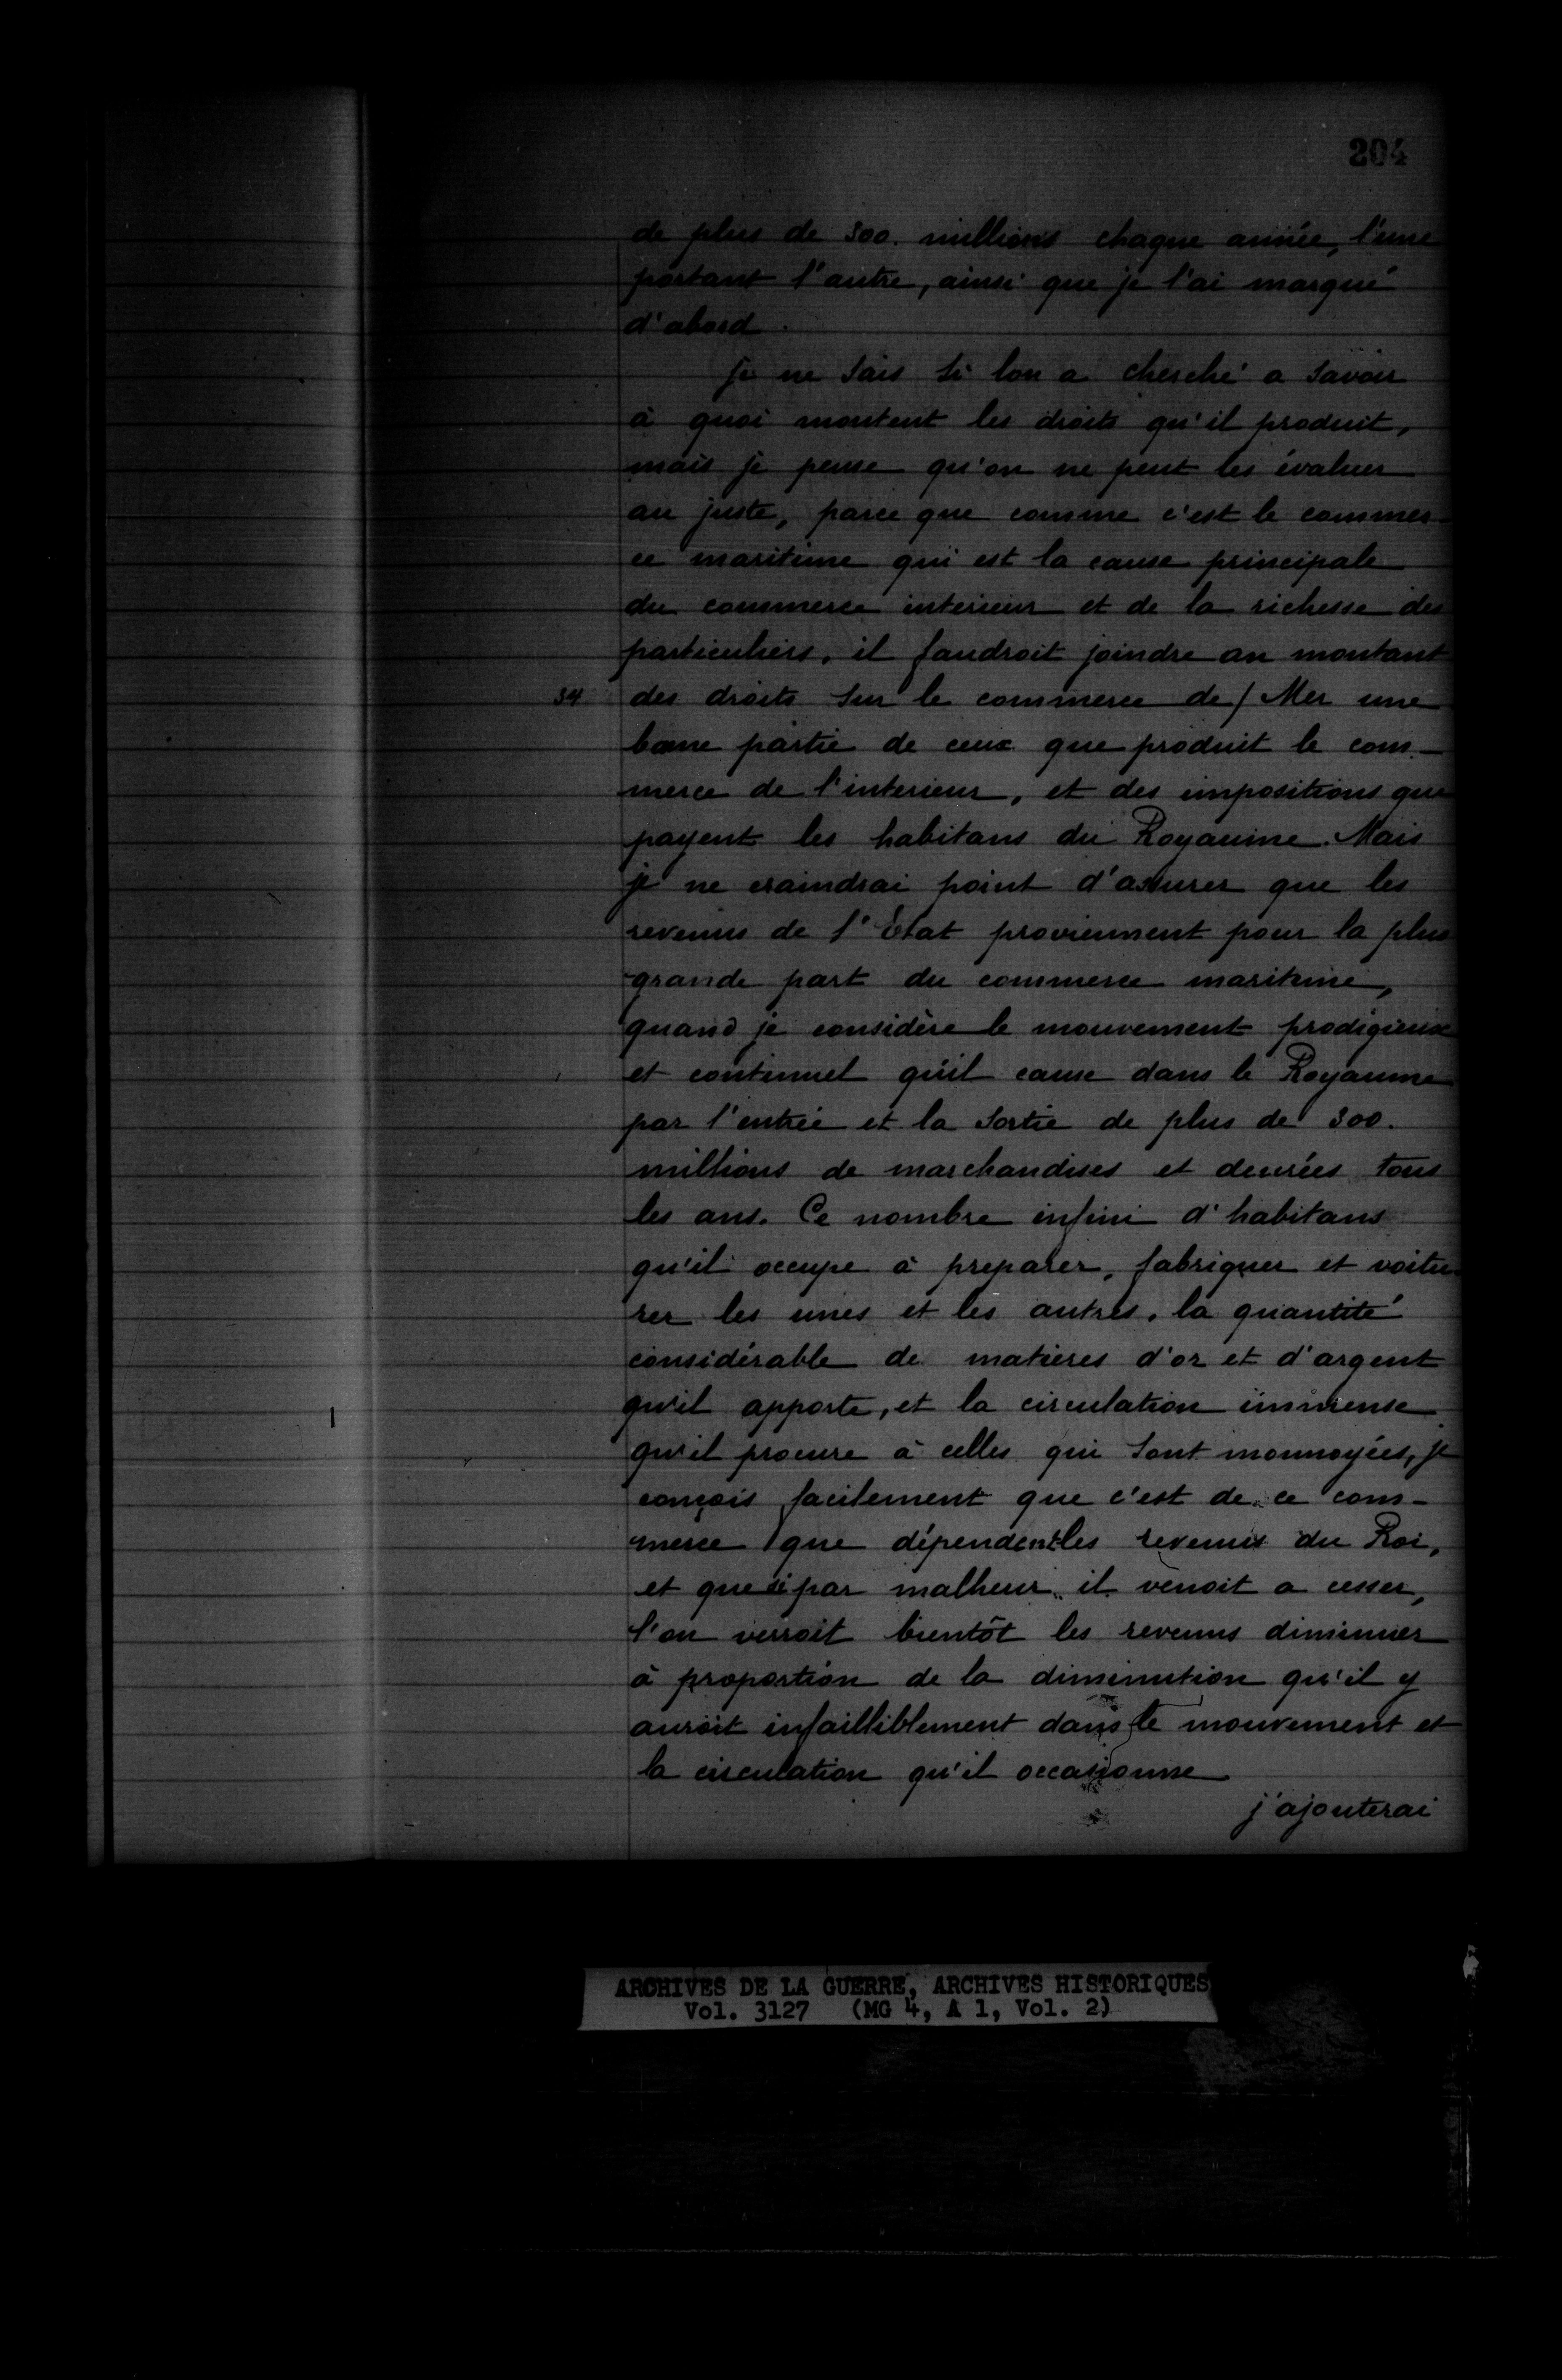 204
de plus de 300. millions chaque année, l'une
portant l'autre, ainsi que je l'ai marqué
d'abord.
Je ne sais si lon a cherché a savoir
à quoi montent les droits qu'il produit,
mais je pense qu'on ne peut les évaluer
au juste, parce que comme c'est le commer-
ce maritime qui est la cause principale
du commerce interieur et de la richesse des
particuliers, il faudroit joindre au montant
34 des droits sur le commerce de / Mer une
bonne partie de ceux que produit le com-
merce de l'interieur, et des impositions que
payent les habitans du Royaume. Mais
je ne craindrai point d'assurer que les
revenus de l'Etat proviennent pour la plus
grande part du commerce maritime,
quand je considère le mouvement prodigieux
et continuel qu'il cause dans le Royaume
par l'entrée et la sortie de plus de 300.
millions de marchandises et denrées tous
les ans. Ce nombre infini d'habitans
qu'il occupe à preparer, fabriquer et voitu-
rer les unes et les autres, la quantité
considérable de matieres d'or et d'argent
qu'il apporte, et la circulation immense
qu'il procure à celles qui sont monnoyées, je
conçois facilement que c'est de ce com-
merce que dépendent les revenus du Roi,
et que si par malheur il venoit a cesser,
l'on verroit bientôt les revenus diminuer
à proportion de la diminution qu'il y
auroit infailliblement dans le mouvement et
la circulation qu'il occasionne
j'ajouterai
ARCHIVES DE LA GUERRE, ARCHIVES HISTORIQUES
Vol. 3127 (MG 4, A 1, Vol. 2)